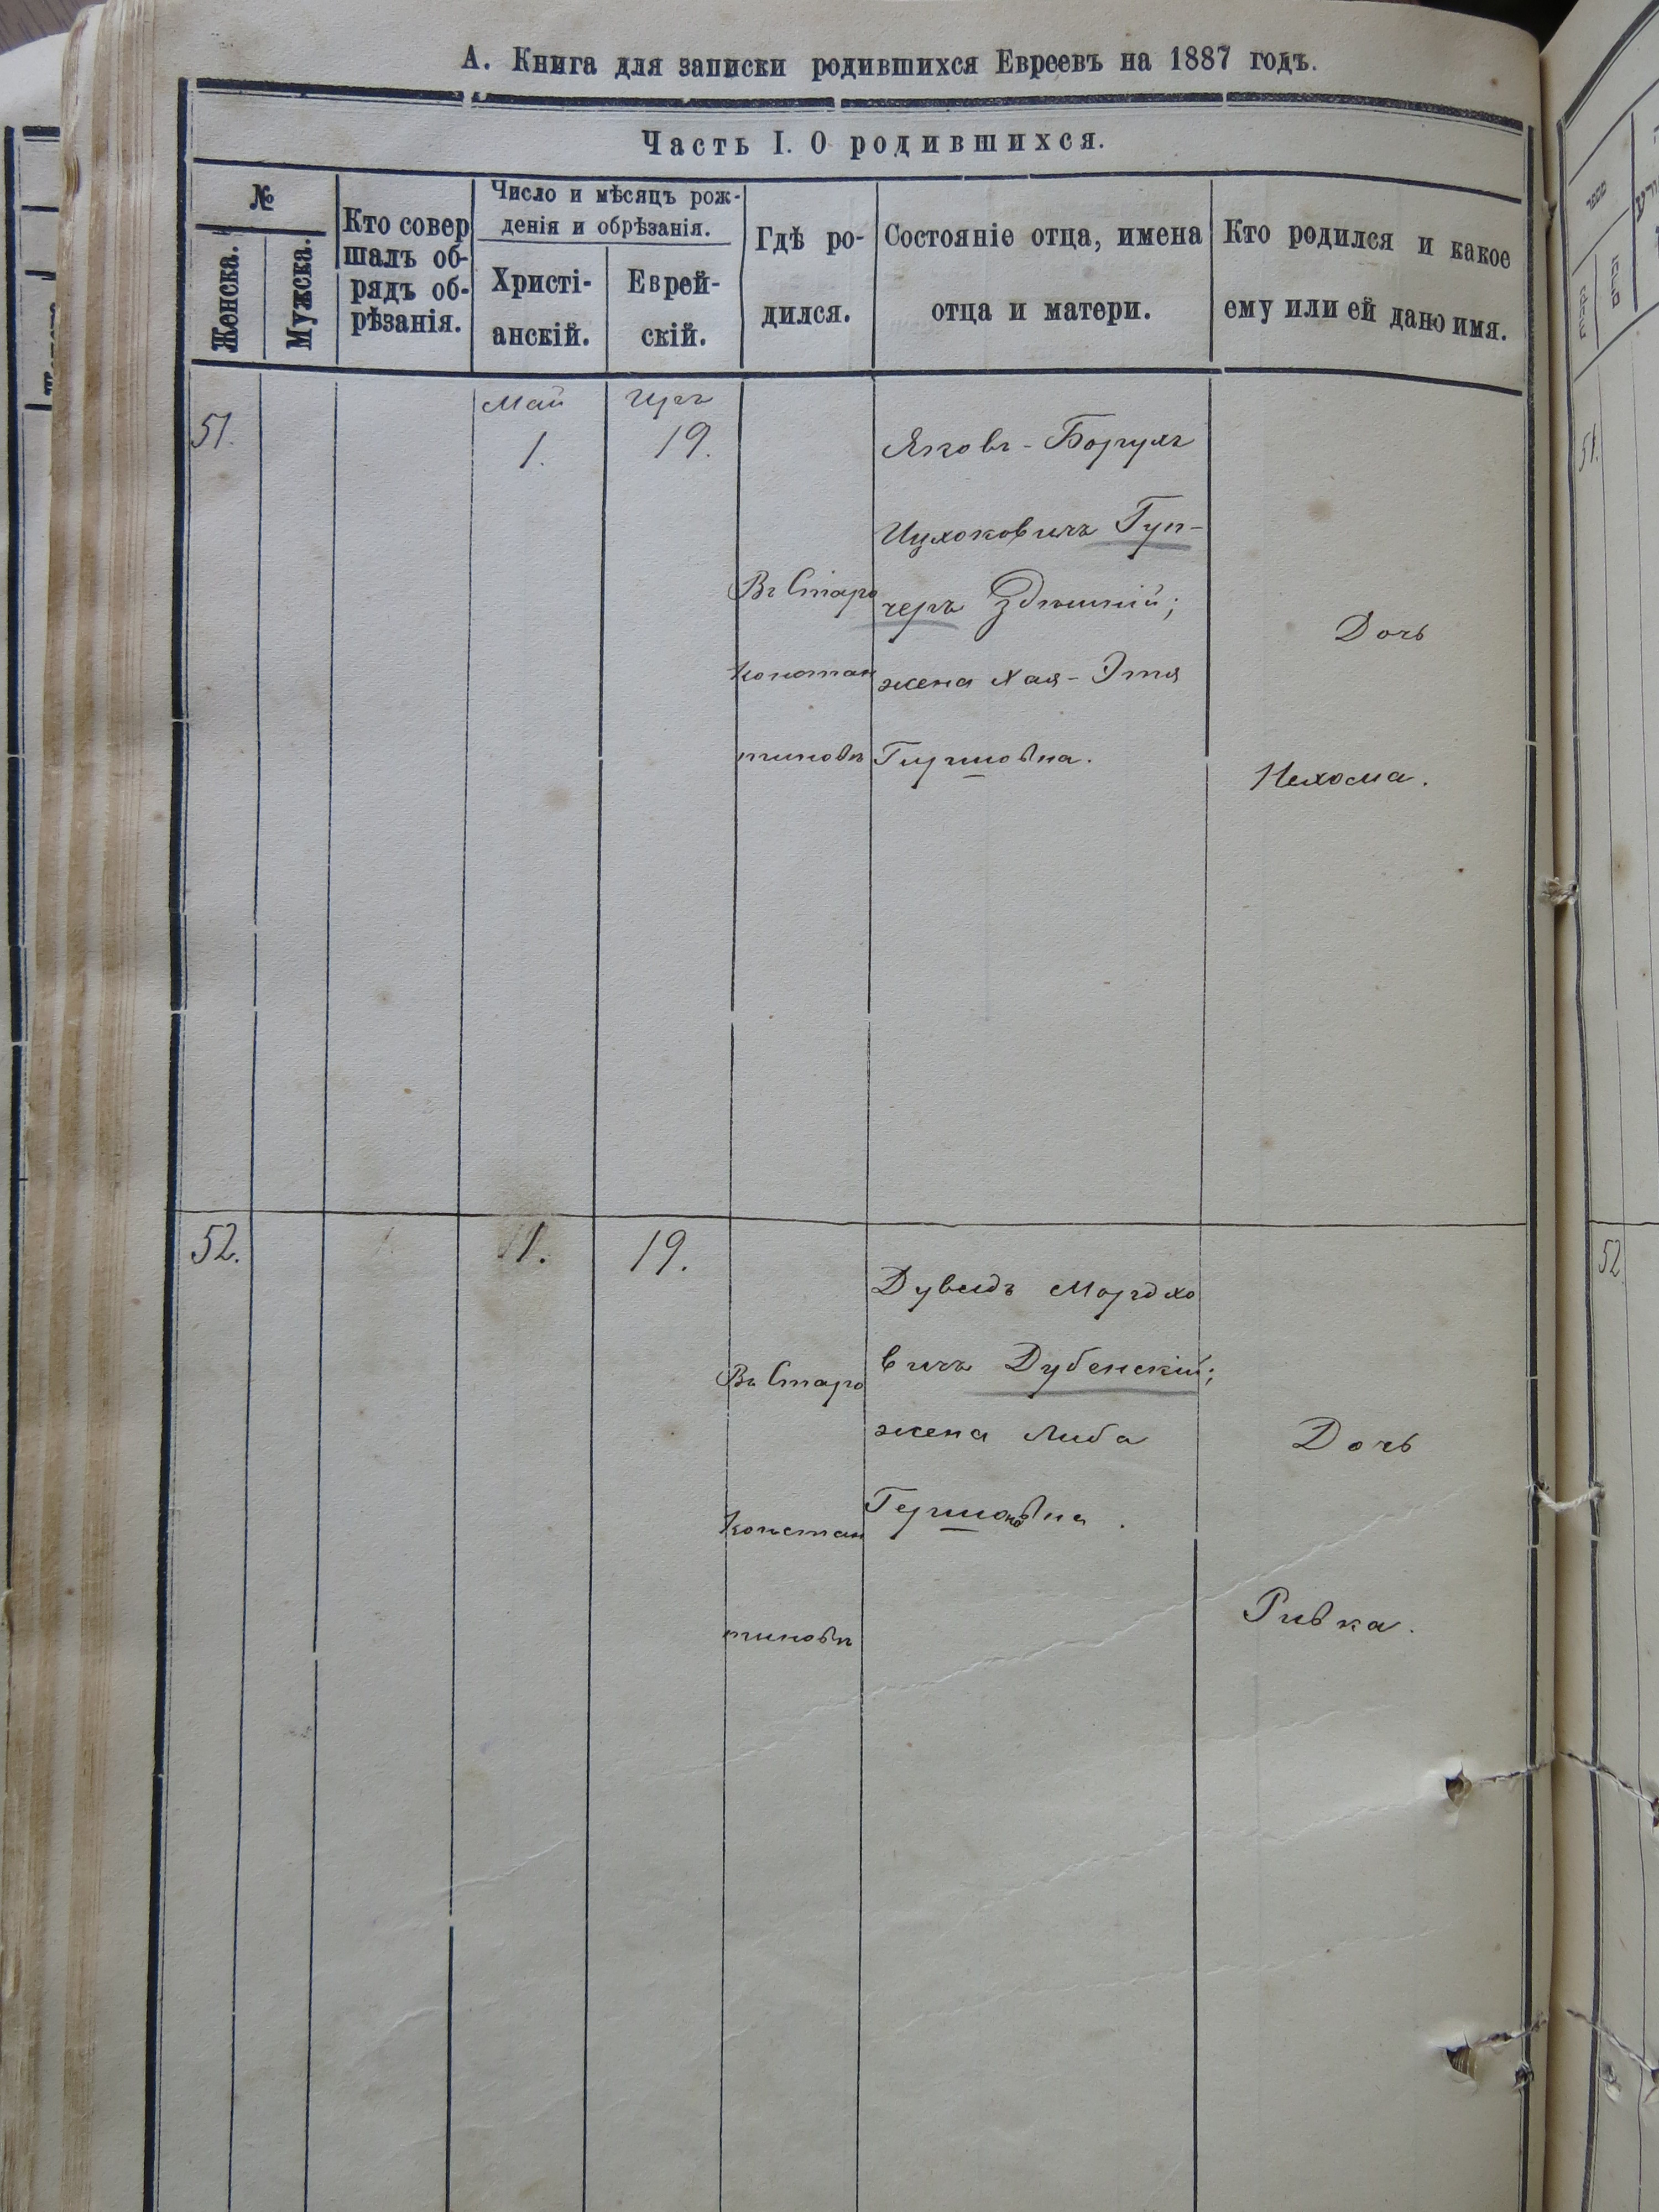 А. Книга для записки родившихся Евреевъ на 1887 годъ.
Часть I. О родившихся.
№
Женска.
Мужска.
Кто совер
шалъ об-
рядъ об-
рѣзанія.
Число и мѣсяцъ рож-
денія и обрѣзанія.
Христі-
анскій.
Еврей-
скій.
Гдѣ ро-
дился.
Состояніе отца, имена
отца и матери.
Кто родился и какое
ему или ей дано имя.
51.
Май
1.
Іиръ
19.
Въ Старо
констан
тиновѣ
Яковъ-Борухъ
Ицхоковичъ Гуп-
черъ Здѣшній;
жена Хая-Этя
Гиршовна.
Дочь
Нехома.
52.
11.
19.
Въ Старо
констан
тиновѣ
Дувидъ Мордхо
вичъ Дубенскій;
жена Либа
Дочь
Ривка.
51.
52